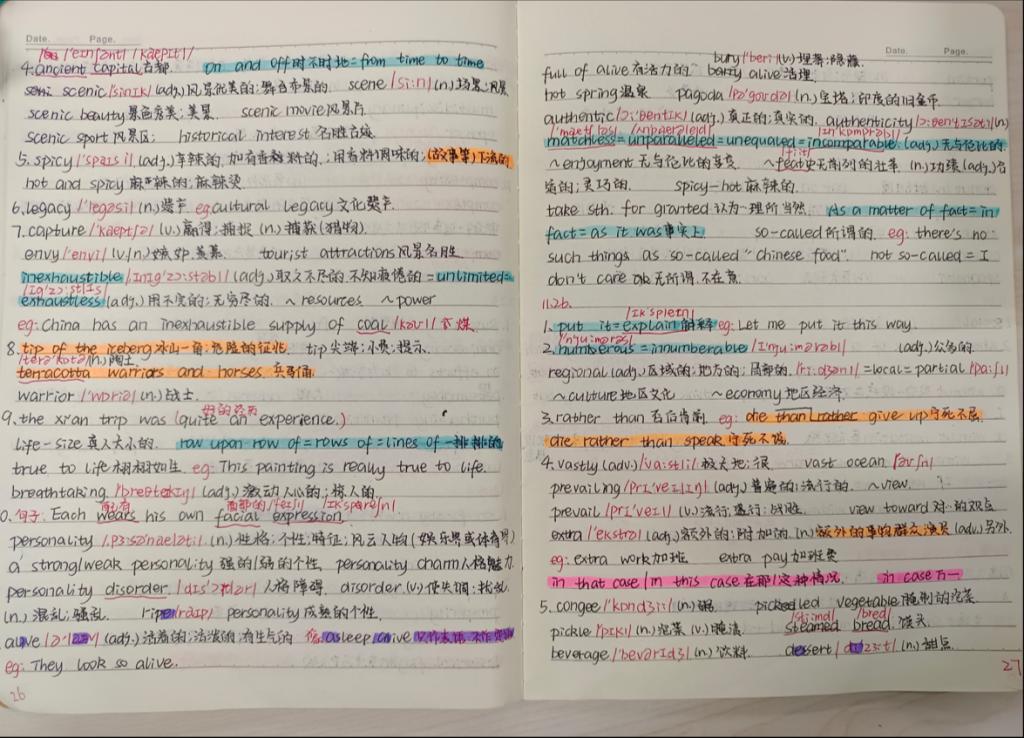 Date. Page.
/'eɪnʃənt/ /kæpɪtl/
4. ancient capital 古都. on and off 时不时地 = from time to time
scenic /sinɪk/ (adj.) 风景优美的; 舞台布景的. scene /si:n/ (n.) 场景; 风景
scenic beauty 景色秀美; 美景. scenic movie 风景片.
scenic sport 风景区; historical interest 名胜古迹.
5. spicy /'spaɪsi/ (adj.) 辛辣的, 加有香料的; 用香料调味的; (故事等)下流的
hot and spicy 麻辣的; 麻辣烫
6. legacy /'legəsi/ (n.) 遗产 eg: cultural legacy 文化遗产.
7. capture /'kæptʃə/ (v.) 赢得; 捕捉 (n.) 捕获(猎物).
envy /'envi/ (v./n.) 嫉妒. 羡慕. tourist attractions 风景名胜.
inexhaustible /ˌɪnɪg'zɔ:stəbl/ (adj.) 取之不尽的. 不知疲倦的 = unlimited =
/ɪg'zɔ:stlɪs/
exhaustless (adj.) 用不完的; 无穷尽的. ~ resources ~ power
eg: China has an inexhaustible supply of coal /kəʊl/ 煤.
8. tip of the iceberg 冰山一角; 危险的征兆. tip 尖端; 小费; 提示.
/terə'kɒtə/ (n.) 陶土.
terracotta warriors and horses. 兵马俑
warrior /'wɒriə/ (n.) 战士.
9. the xi'an trip was (quite an experience.)
life-size 真人大小的. row upon row of = rows of = lines of 一排排的
true to life 栩栩如生. eg: This painting is really true to life.
breathtaking /'breθteɪkɪŋ/ (adj.) 激动人心的; 惊人的.
面部的 /'feɪʃl/ /ɪk'spreʃn/
0. 句子: Each wears his own facial expression.
personality /ˌpɜ:sə'næləti/ (n.) 性格; 个性; 特征; 风云人物 (娱乐界或体育界)
a strong/weak personality 强的/弱的个性. personality charm 人格魅力.
personality disorder /dɪs'ɔ:də/ 人格障碍. disorder (v.) 使失调; 扰乱.
(n.) 混乱; 骚乱. ripe /raɪp/ personality 成熟的个性.
alive /ə'laɪv/ (adj.) 活着的; 活泼的; 有生气的 asleep, alive
eg: They look so alive.
26
Date. Page.
bury /'beri/ (v.) 埋葬; 隐藏.
full of alive 有活力的 bury alive 活埋.
hot spring 温泉 pagoda /pə'gəʊdə/ (n.) 宝塔; 印度的旧金币
authentic /ɔ:'θentɪk/ (adj.) 真正的; 真实的. authenticity /ɔ:θen'tɪsəti/ (n.)
/'mætʃləs/ /ʌn'pærəleld/ /ɪn'kɒmprəbl/
matchless = unparalleled = unequaled = incomparable. (adj.) 无与伦比的
/fi:t/
~ enjoyment 无与伦比的享受 ~ feat 史无前例的壮举 (n.) 功绩 (adj.) 合
适的; 灵巧的. spicy-hot 麻辣的.
take sth. for granted 认为…理所当然. As a matter of fact = in
fact = as it was 事实上 so-called 所谓的. eg: there's no
such things as so-called "Chinese food". not so-called = I
don't care 无所谓. 不在意.
11.26.
/ɪk'spleɪn/
1. put it = explain 解释 eg: Let me put it this way.
/'nju:mərəs/
2. numberous = innumberable /ɪ'nju:mərəbl/ (adj.) 众多的.
regional (adj.) 区域的; 地方的; 局部的. /'ri:dʒənl/ = local = partial /'pɑ:ʃl/
~ culture 地区文化 ~ economy 地区经济
3. rather than 否后肯前 eg: die than rather give up 宁死不屈.
die rather than speak 宁死不说.
4. vastly (adv.) /'vɑ:stli/ 极大地; 很 vast ocean /'əʊʃn/
prevailing /prɪ'veɪlɪŋ/ (adj.) 普遍的; 流行的. ~ view.
prevail /prɪ'veɪl/ (v.) 流行; 盛行; 战胜. view toward 对…的观点
extra /'ekstrə/ (adj.) 额外的; 附加的 (n.) 额外的事物; 群众演员 (adv.) 另外.
eg: extra work 加班 extra pay 加班费
in that case / in this case 在那/这种情况. in case 万一
5. congee /'kɒndʒi:/ (n.) 粥. pickled vegetable 腌制的泡菜.
/sti:md/ /bred/
pickle /'pɪkl/ (n.) 泡菜 (v.) 腌渍 steamed bread. 馒头.
beverage /'bevərɪdʒ/ (n.) 饮料. dessert /dɪ'zɜ:t/ (n.) 甜点.
27